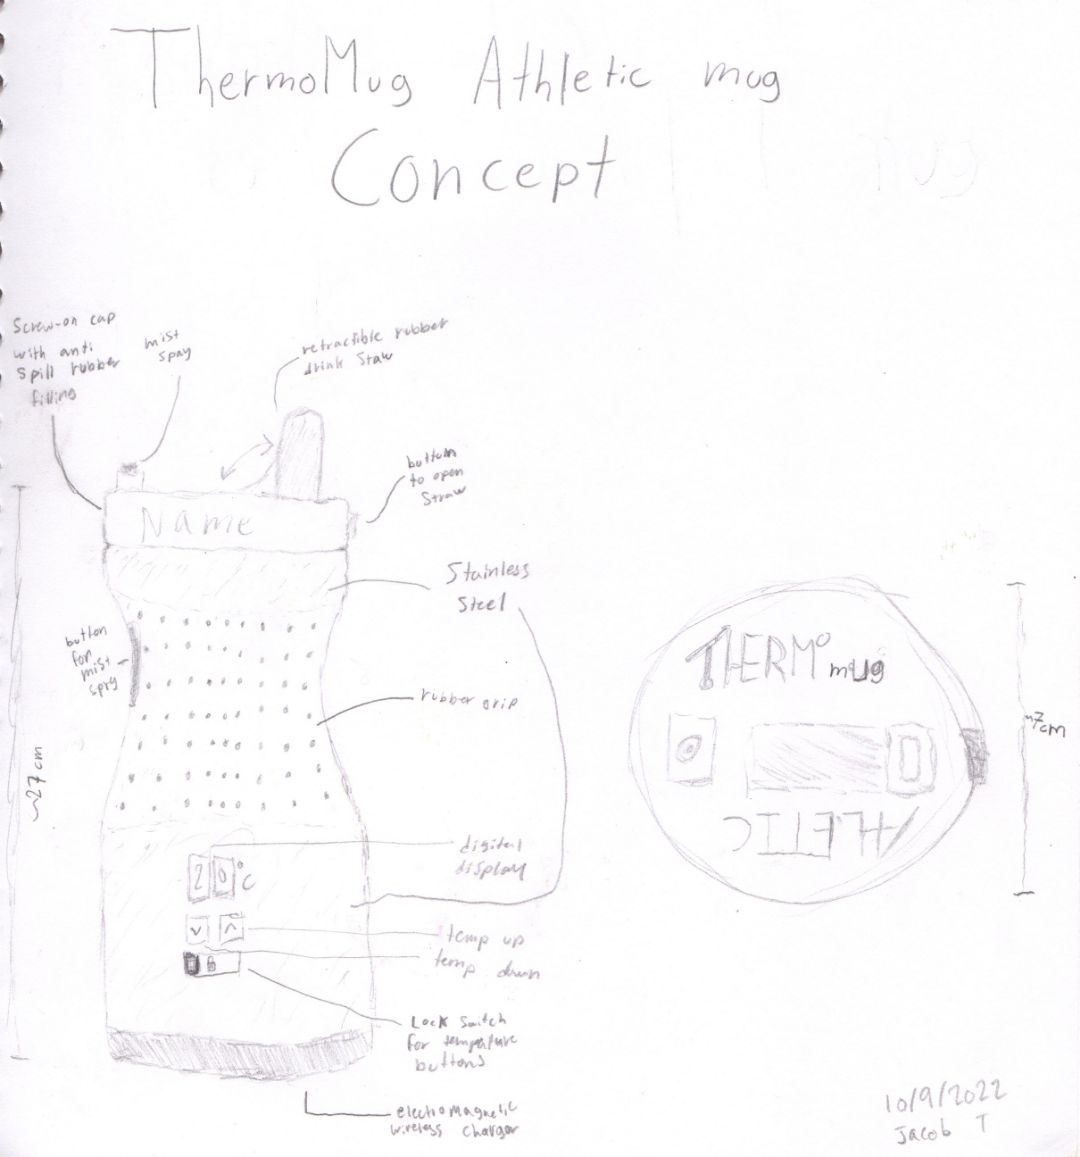 ThermoMug Athletic mug
Concept
Screw-on cap
with anti
spill rubber
filling
mist
spay
retractible rubber
drink Staw
button
to open
Straw
Name
Stainless
Steel
button
for
mist
spry
rubber grip
~27cm
digital
display
20°C
temp up
temp down
Lock Switch
for tempature
buttons
electromagnetic
wireless charger
THERMO
mug
ATHLETIC
~7cm
10/9/2022
Jacob T